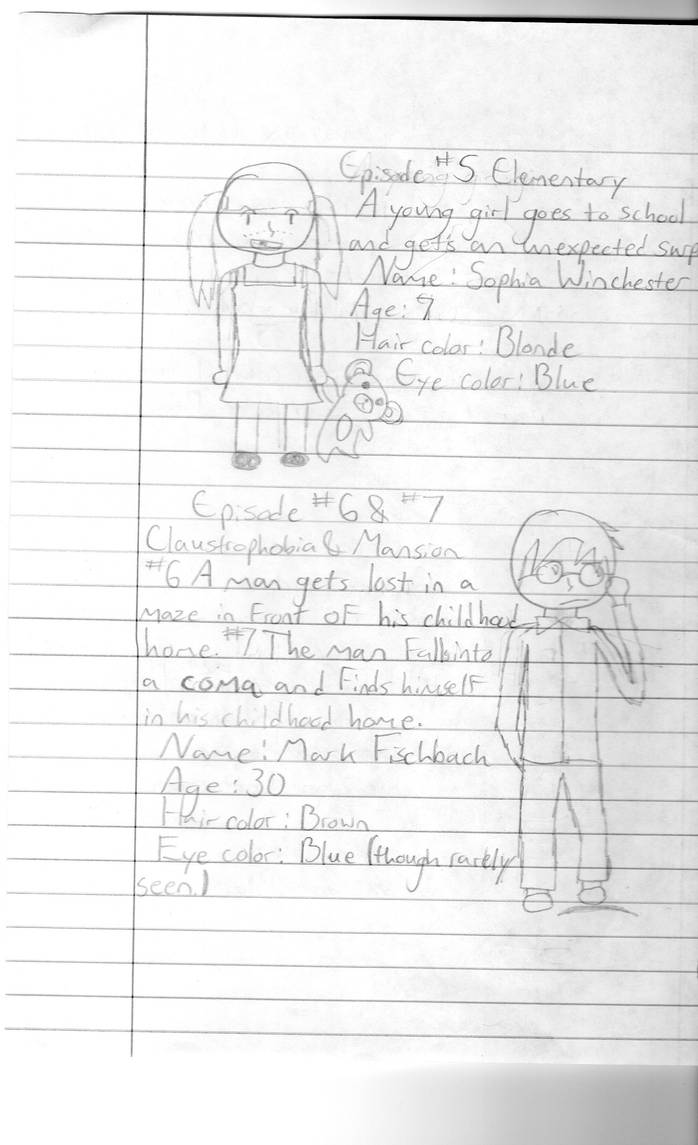 Episode #5 Elementary
A young girl goes to school
and gets an unexpected surp
Name: Sophia Winchester
Age: 9
Hair color: Blonde
Eye color: Blue
Episode #6 & #7
Claustrophobia & Mansion
#6 A man gets lost in a
maze in front of his childhood
home. #7 The man falls into
a coma and finds himself
in his childhood home.
Name: Mark Fischbach
Age: 30
Hair color: Brown
Eye color: Blue (though rarely
seen.)